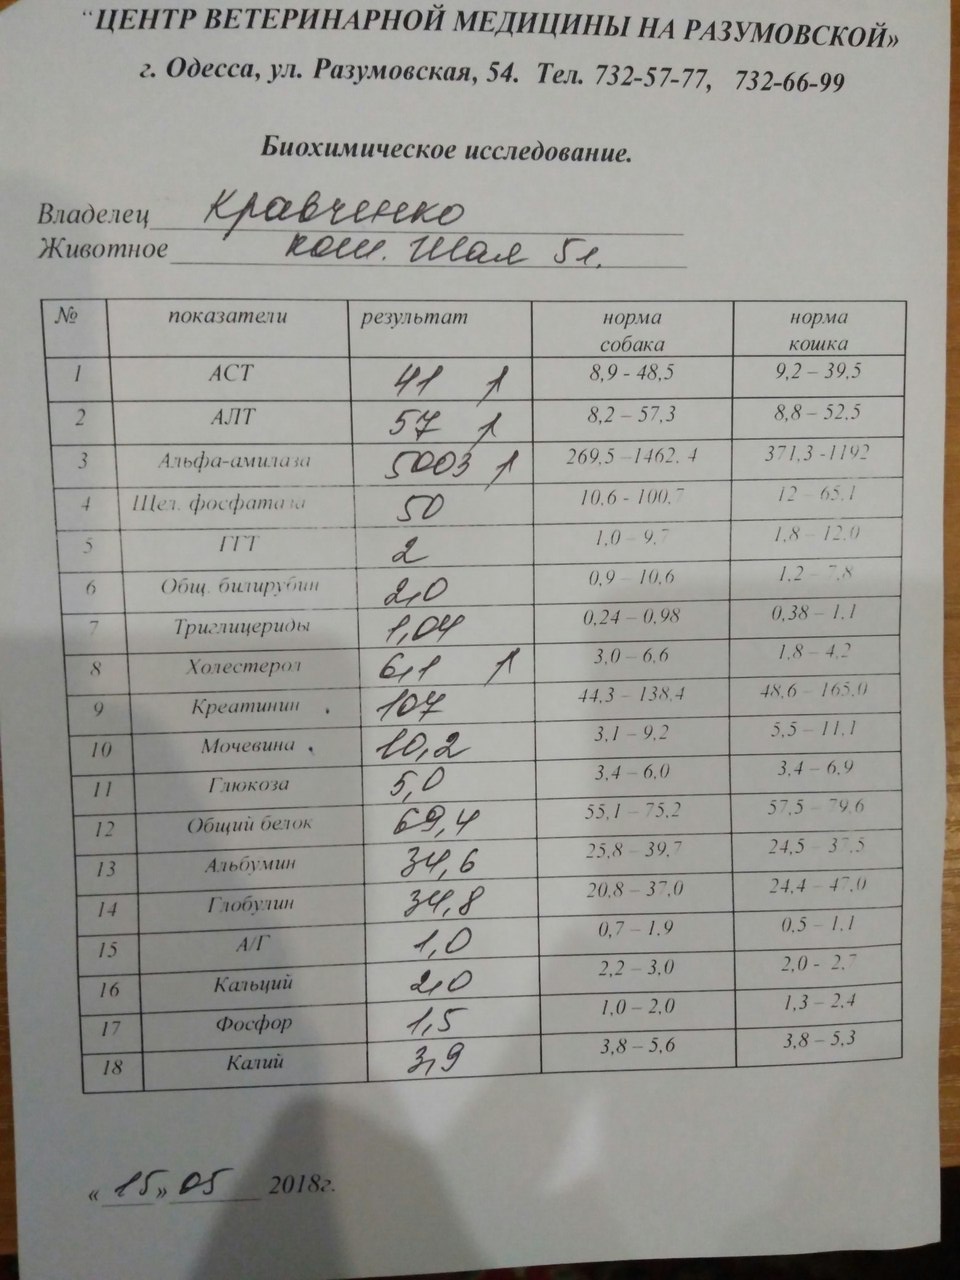 "ЦЕНТР ВЕТЕРИНАРНОЙ МЕДИЦИНЫ НА РАЗУМОВСКОЙ»
г. Одесса, ул. Разумовская, 54. Тел. 732-57-77, 732-66-99
Биохимическое исследование.
Владелец Кравченко
Животное кош. Шая 5л.
№ показатели результат норма собака норма кошка
1 АСТ 41 ↑ 8,9 - 48,5 9,2 – 39,5
2 АЛТ 57 ↑ 8,2 – 57,3 8,8 – 52,5
3 Альфа-амилаза 5003 ↑ 269,5 –1462, 4 371,3 -1192
4 Щел. фосфатаза 50 10,6 - 100,7 12 – 65,1
5 ГГТ 2 1,0 – 9,7 1,8 – 12,0
6 Общ. билирубин 2,0 0,9 – 10,6 1,2 – 7,8
7 Триглицериды 1,04 0,24 – 0,98 0,38 – 1,1
8 Холестерол 6,1 ↑ 3,0 – 6,6 1,8 – 4,2
9 Креатинин 107 44,3 – 138,4 48,6 – 165,0
10 Мочевина 10,2 3,1 – 9,2 5,5 – 11,1
11 Глюкоза 5,0 3,4 – 6,0 3,4 – 6,9
12 Общий белок 69,4 55,1 – 75,2 57,5 – 79,6
13 Альбумин 34,6 25,8 – 39,7 24,5 – 37,5
14 Глобулин 34,8 20,8 – 37,0 24,4 – 47,0
15 А/Г 1,0 0,7 – 1,9 0,5 – 1,1
16 Кальций 2,0 2,2 – 3,0 2,0 - 2,7
17 Фосфор 1,5 1,0 – 2,0 1,3 – 2,4
18 Калий 3,9 3,8 – 5,6 3,8 – 5,3
«15» 05 2018г.